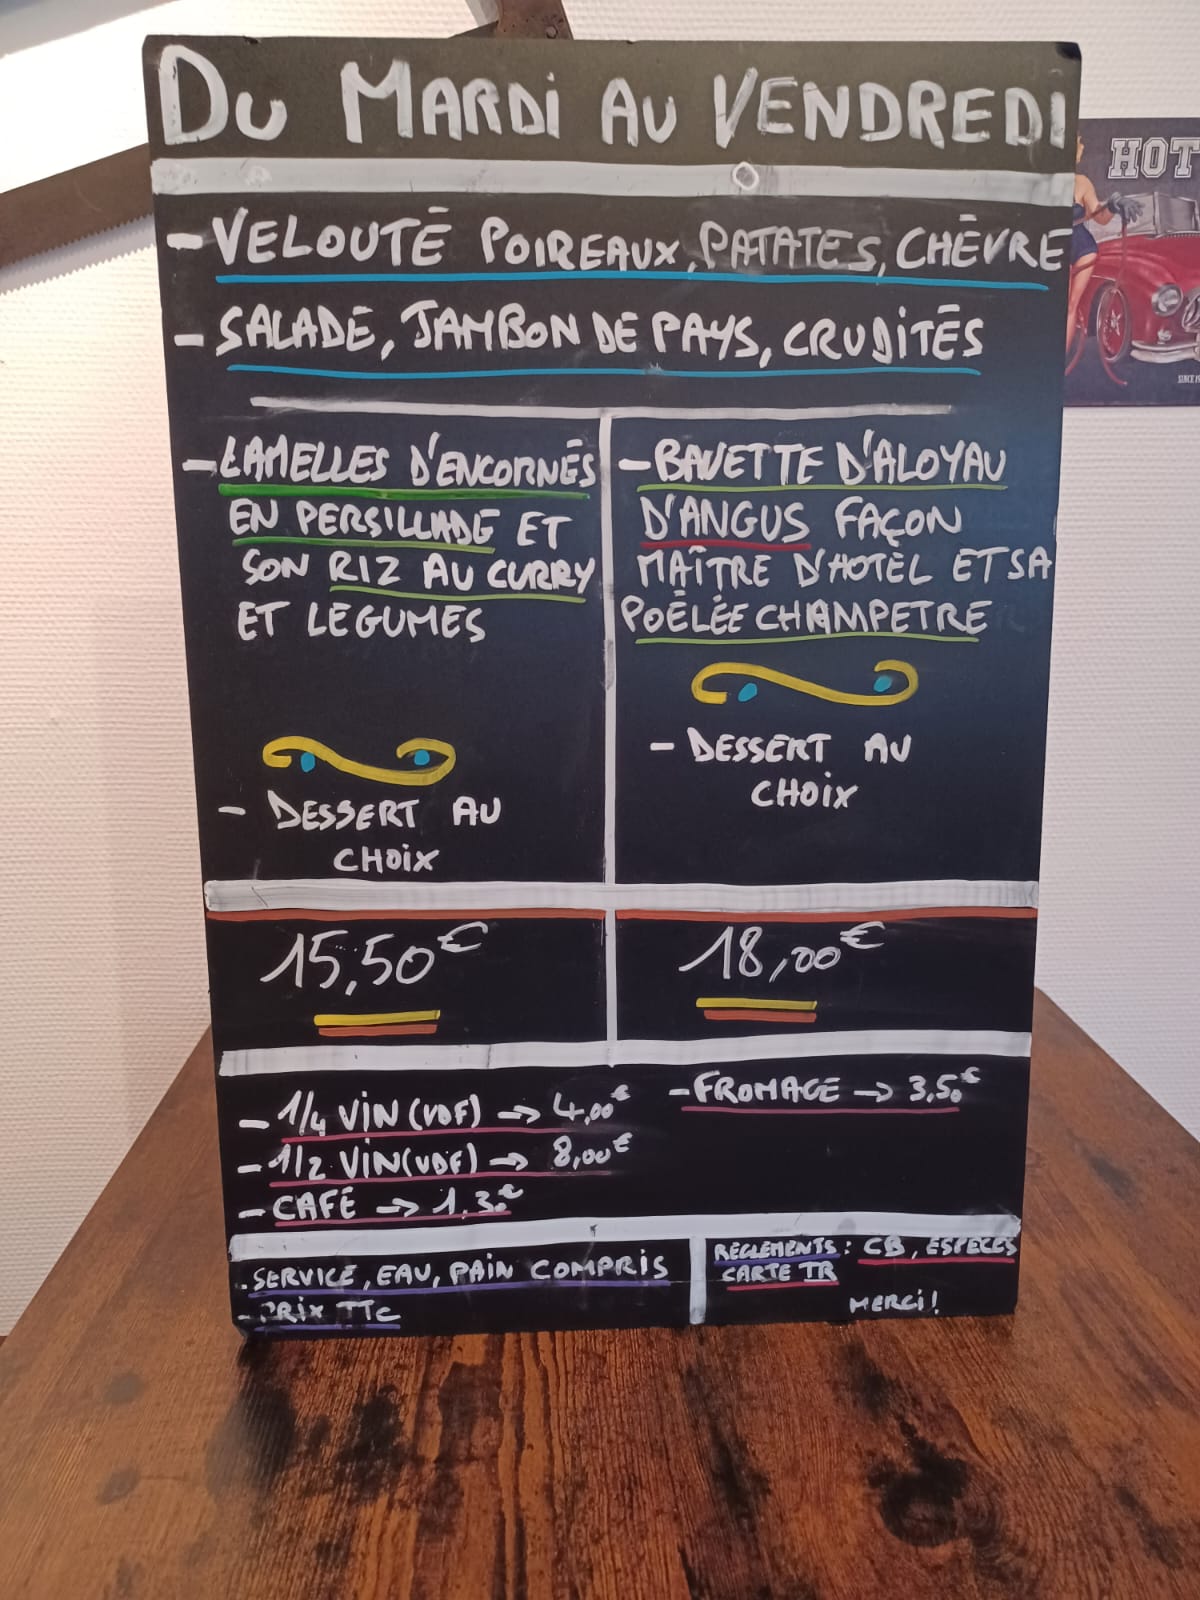 DU MARDI AU VENDREDI
- VELOUTÉ POIREAUX, PATATES, CHÈVRE
- SALADE, JAMBON DE PAYS, CRUDITÉS
- LAMELLES D'ENCORNÉS
EN PERSILLADE ET
SON RIZ AU CURRY
ET LEGUMES
- DESSERT AU
CHOIX
15,50€
- BAVETTE D'ALOYAU
D'ANGUS FAÇON
MAÎTRE D'HOTEL ET SA
POÊLÉE CHAMPETRE
- DESSERT AU
CHOIX
18,00€
- 1/4 VIN (VDF) → 4,00€
- 1/2 VIN (VDF) → 8,00€
- CAFÉ → 1.30€
- FROMAGE → 3,50€
- SERVICE, EAU, PAIN COMPRIS
- PRIX TTC
REGLEMENTS : CB, ESPECES
CARTE TR
MERCI!
HOT